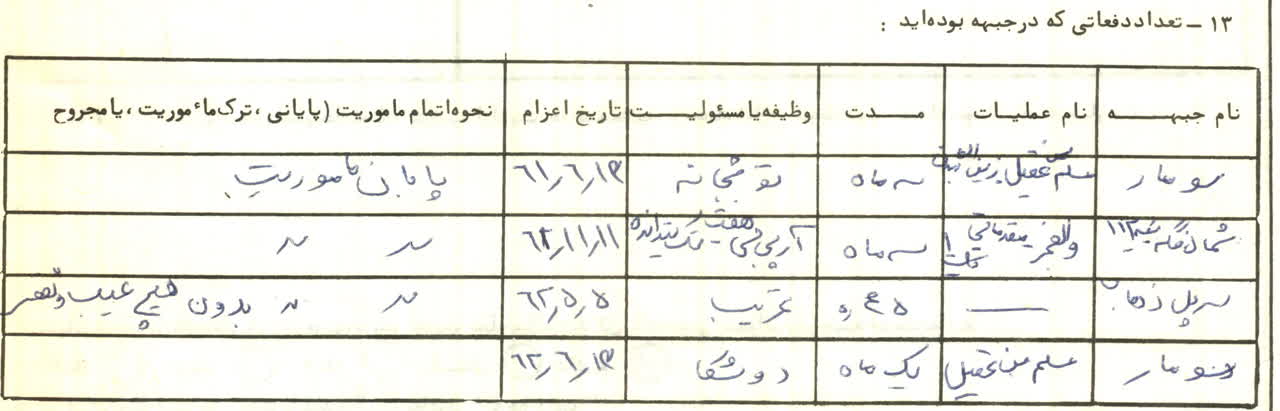 ۱۳ – تعداد دفعاتی که در جبهه بوده‌اید :
نام جبهه نام عملیات مدت وظیفه یا مسئولیت تاریخ اعزام نحوه اتمام ماموریت (پایانی ، ترک مأموریت ، یا مجروح
سومار مسلم بن عقیل زین العابدین سه ماه توپخانه ۶۱٫۶٫۱۳ پایان ماموریت
شمال والفجر مقدماتی ۱ سه ماه آرپی جی هفت تک تیرانداز ۶۲٫۱۱٫۱۱ 〃 〃
سرپل ذهاب — ۵ تخریب ۶۲٫۵٫۵ 〃 〃 بدون هیچ عیب و نقص
سومار مسلم بن عقیل یک ماه دوشکا ۶۲٫۶٫۱۳